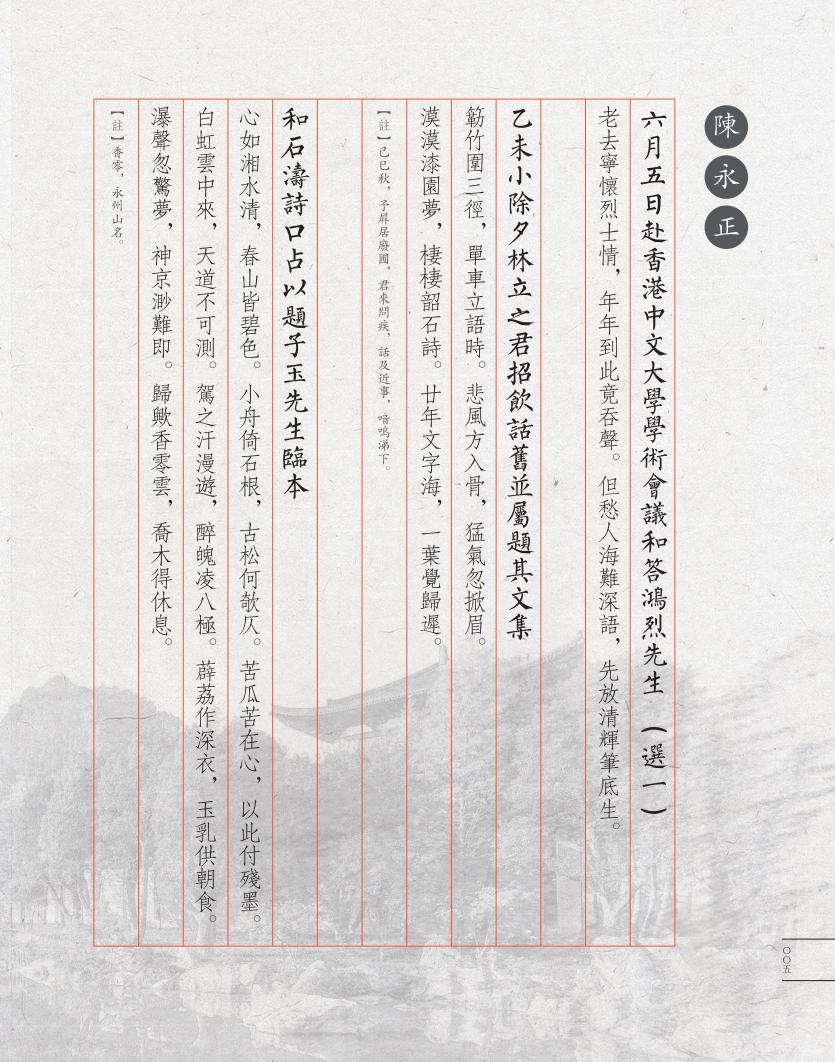 陳永正
六月五日赴香港中文大學學術會議和答鴻烈先生（選一）
老去寧懷烈士情，年年到此竟吞聲。但愁人海難深語，先放清輝筆底生。
乙未小除夕林立之君招飲話舊並屬題其文集
簕竹圍三徑，單車立語時。悲風方入骨，猛氣忽掀眉。
漠漠漆園夢，棲棲韶石詩。廿年文字海，一葉覺歸遲。
【註】己巳秋，予屏居廢圃，君來問疾，話及近事，喑嗚涕下。
和石濤詩口占以題子玉先生臨本
心如湘水清，春山皆碧色。小舟倚石根，古松何欹仄。苦瓜苦在心，以此付殘墨。
白虹雲中來，天道不可測。駕之汗漫遊，醉魄凌八極。薜荔作深衣，玉乳供朝食。
瀑聲忽驚夢，神京渺難即。歸歟香零雲，喬木得休息。
【註】香零，永州山名。
〇〇五